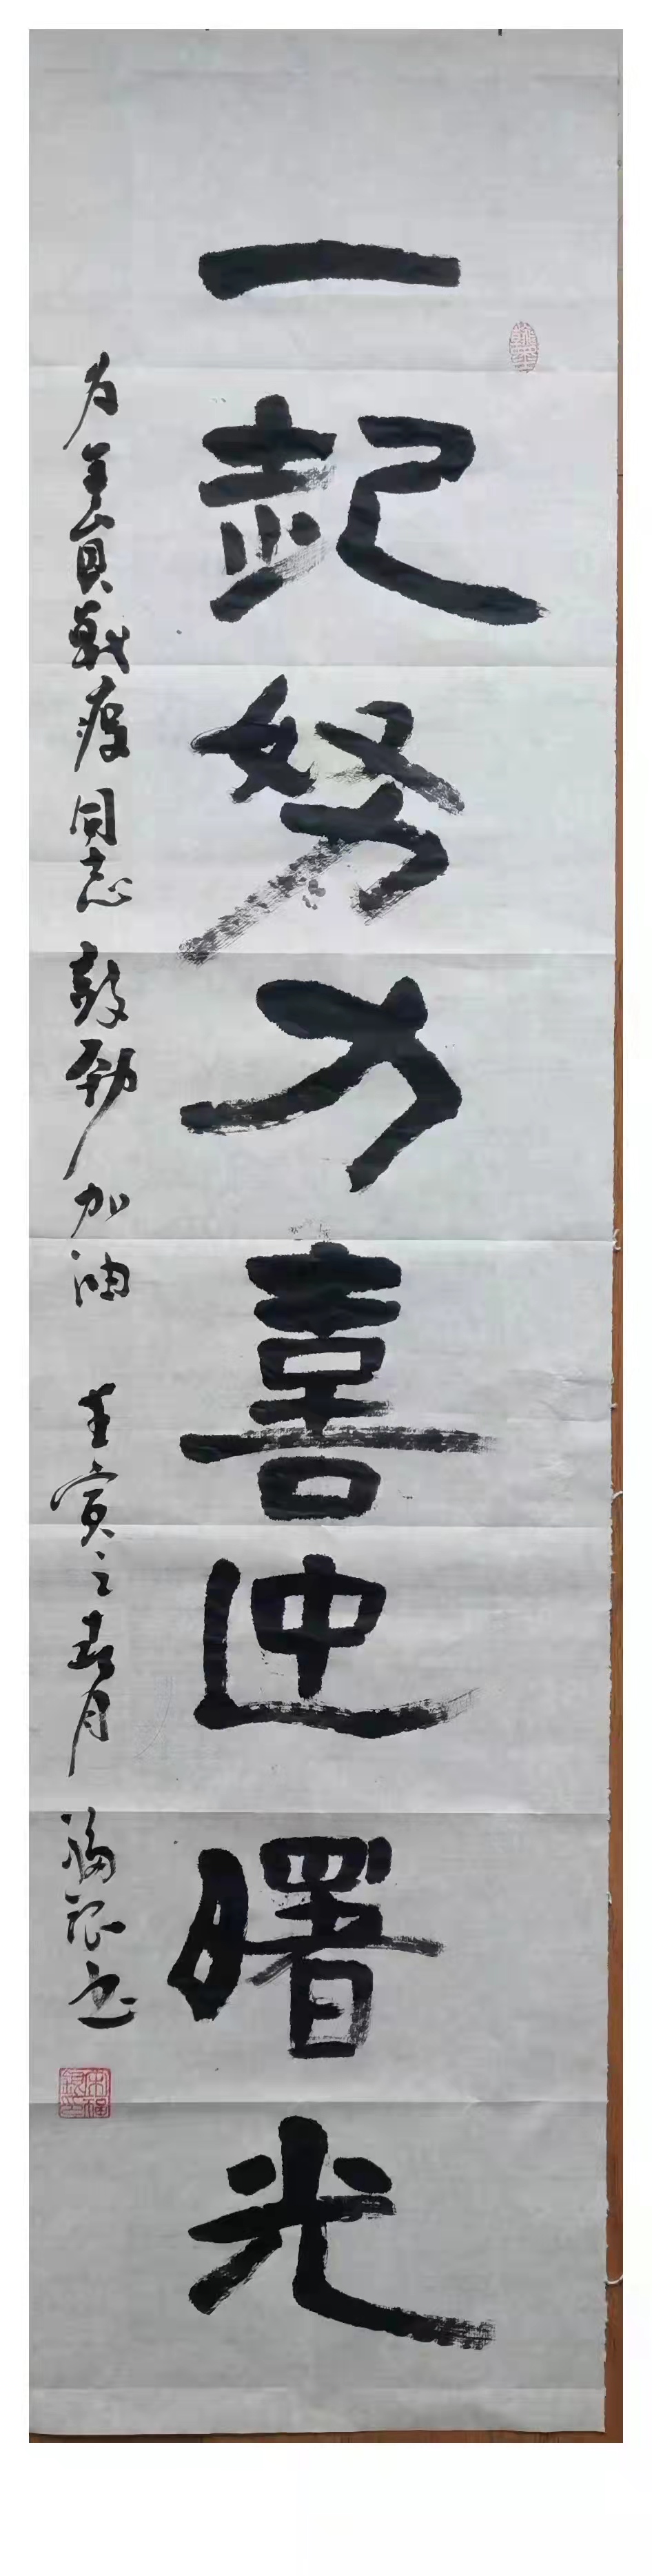 一起努力喜迎曙光
为全員战疫同志鼓劲加油 壬寅之春月 福银书